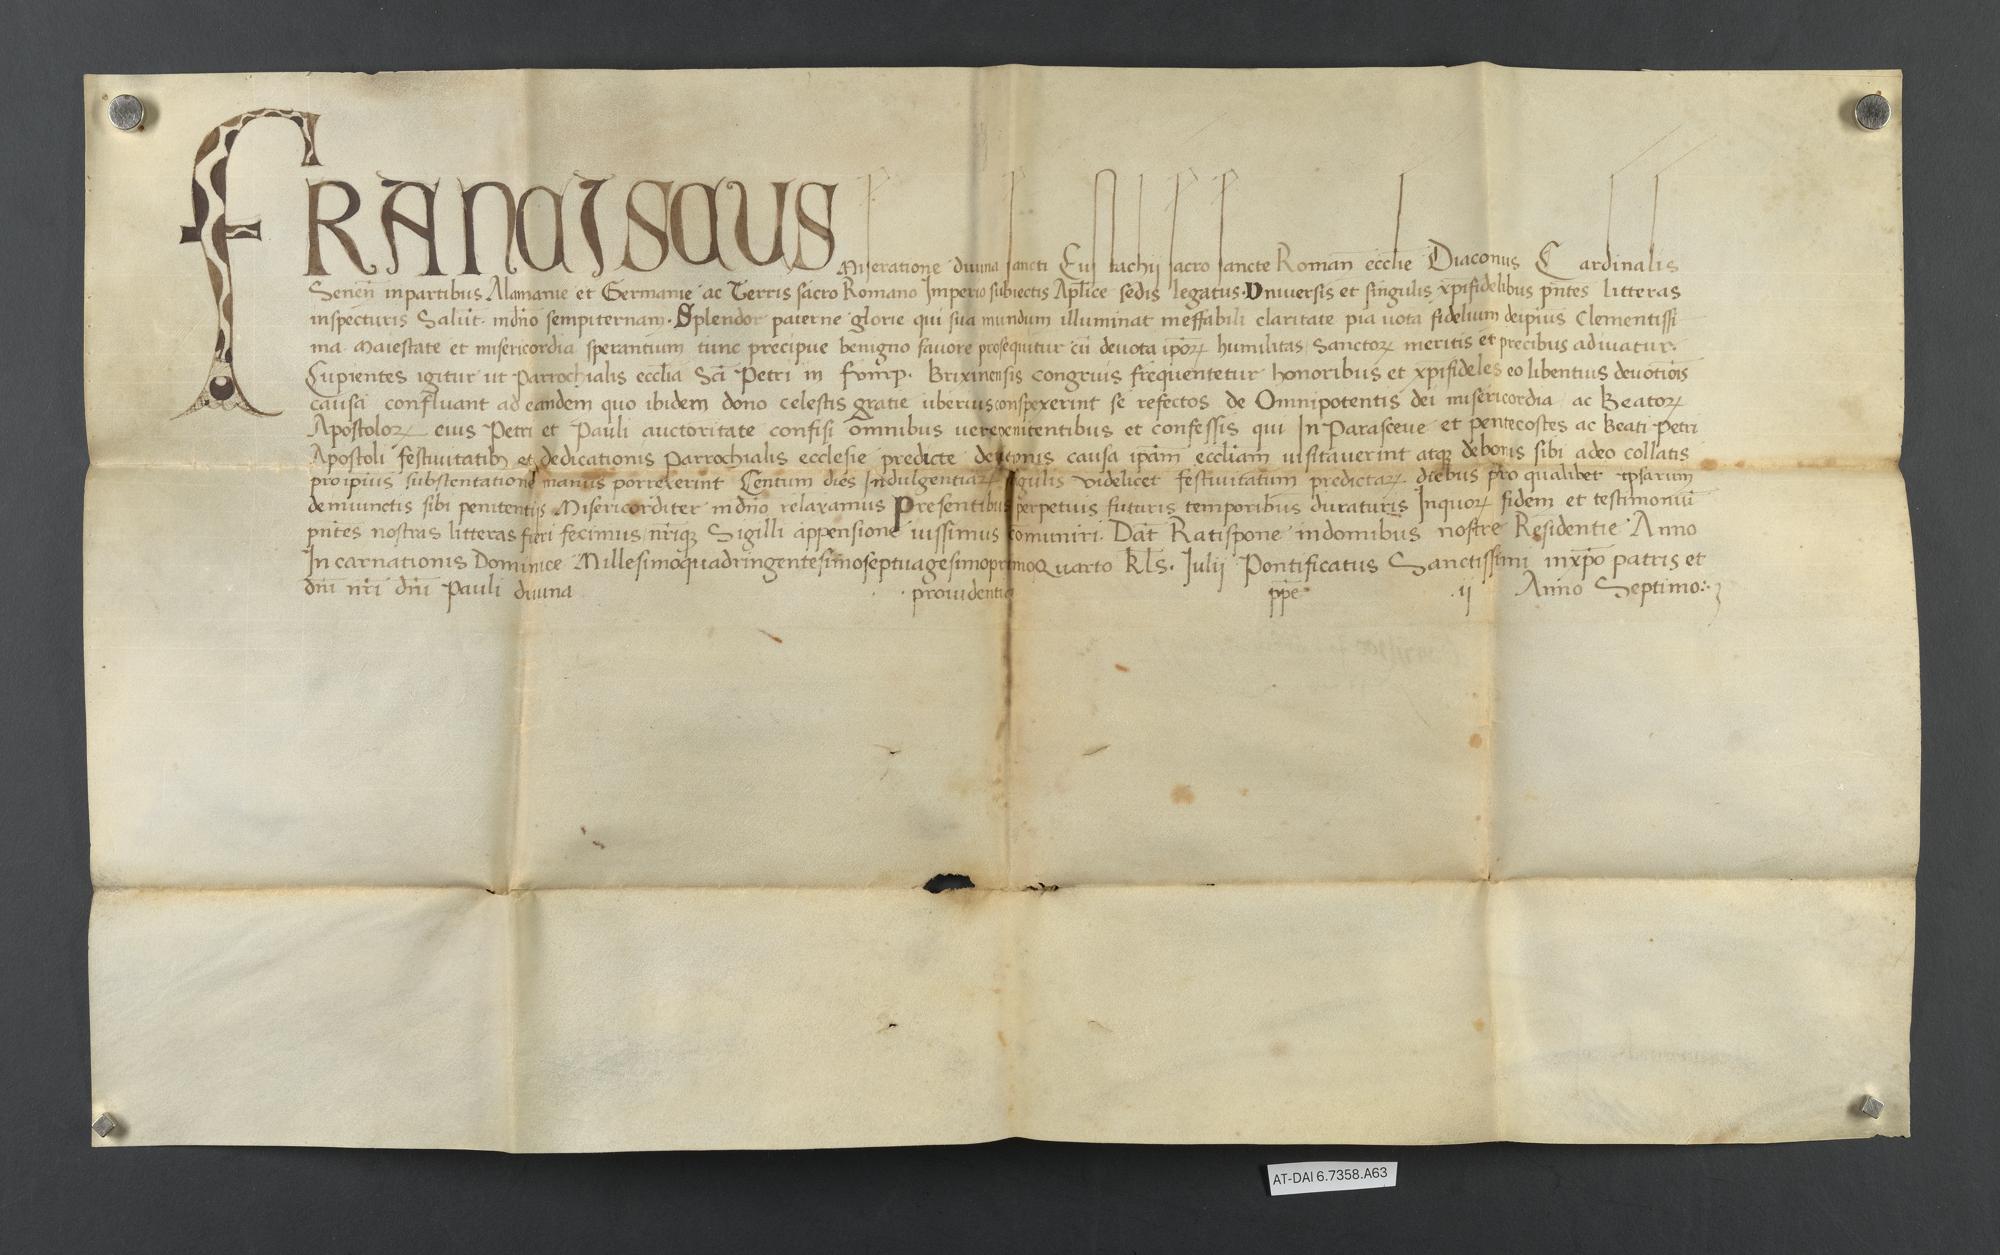 FRANCISCUS Miseratione divina sancti Eustachii sacro sancte Roman̄ eccl̄ie Diaconus Cardinalis
Senen̄ in partibus Alamanie et Germanie ac Terris sacro Romano Imperio subiectis Ap̄lice sedis legatus. Universis et singulis xp̄ifidelibus pn̄tes litteras
inspecturis Salūt. in dn̄o sempiternam. Splendor paterne glorie qui sua mundum illuminat ineffabili claritate pia vota fidelium de ipius Clementissi
ma Maiestate et misericordia sperantium tunc precipue benigno favore prosequitur cū devota ipōrꝝ humilitas Sanctorꝝ meritis et precibus adiuvatur.
Cupientes igitur ut Parrochialis eccl̄ia Sc̄i Petri in Fomp. Brixinensis congruis frequentetur honoribus et xp̄ifideles eo libentius devotiōis
causa confluant ad eandem quo ibidem dono celestis gratie uberius conspexerint se refectos de Omnipotentis dei misericordia ac Beatorꝝ
Apostolorꝝ eius Petri et Pauli auctoritate confisi omnibus vere penitentibus et confessis qui In Parasceve et pentecostes ac Beati Petri
Apostoli festivitatibꝫ et dedicationis Parrochialis ecclesie predicte devotonis causa ipām eccl̄iam visitaverint atqꝫ de bonis sibi a deo collatis
pro ipius substentatione manus porrexerint Centum dies Indulgentiarꝝ gulis videlicet festivitatum predictarꝝ diebus pro qualibet ipsarum
de iniunctis sibi penitentijs Misericorditer in dn̄o relaxamus Presentibus perpetuis futuris temporibus duraturis In quorꝝ fidem et testimoniū
pn̄tes nostras litteras fieri fecimus nr̄iqꝫ Sigilli appensione iussimus cōmuniri. Dat̄ Ratispone in domibus nostre Residentie Anno
Incarnationis Dominice Millesimoquadringentesimoseptuagesimoprimo Quarto kl̄s. Iulij Pontificatus Sanctissimi in xp̄o patris et
dn̄i nr̄i dn̄i Pauli divina providentia pp̄e ij Anno Septimo
AT-DAI 6.7358.A63